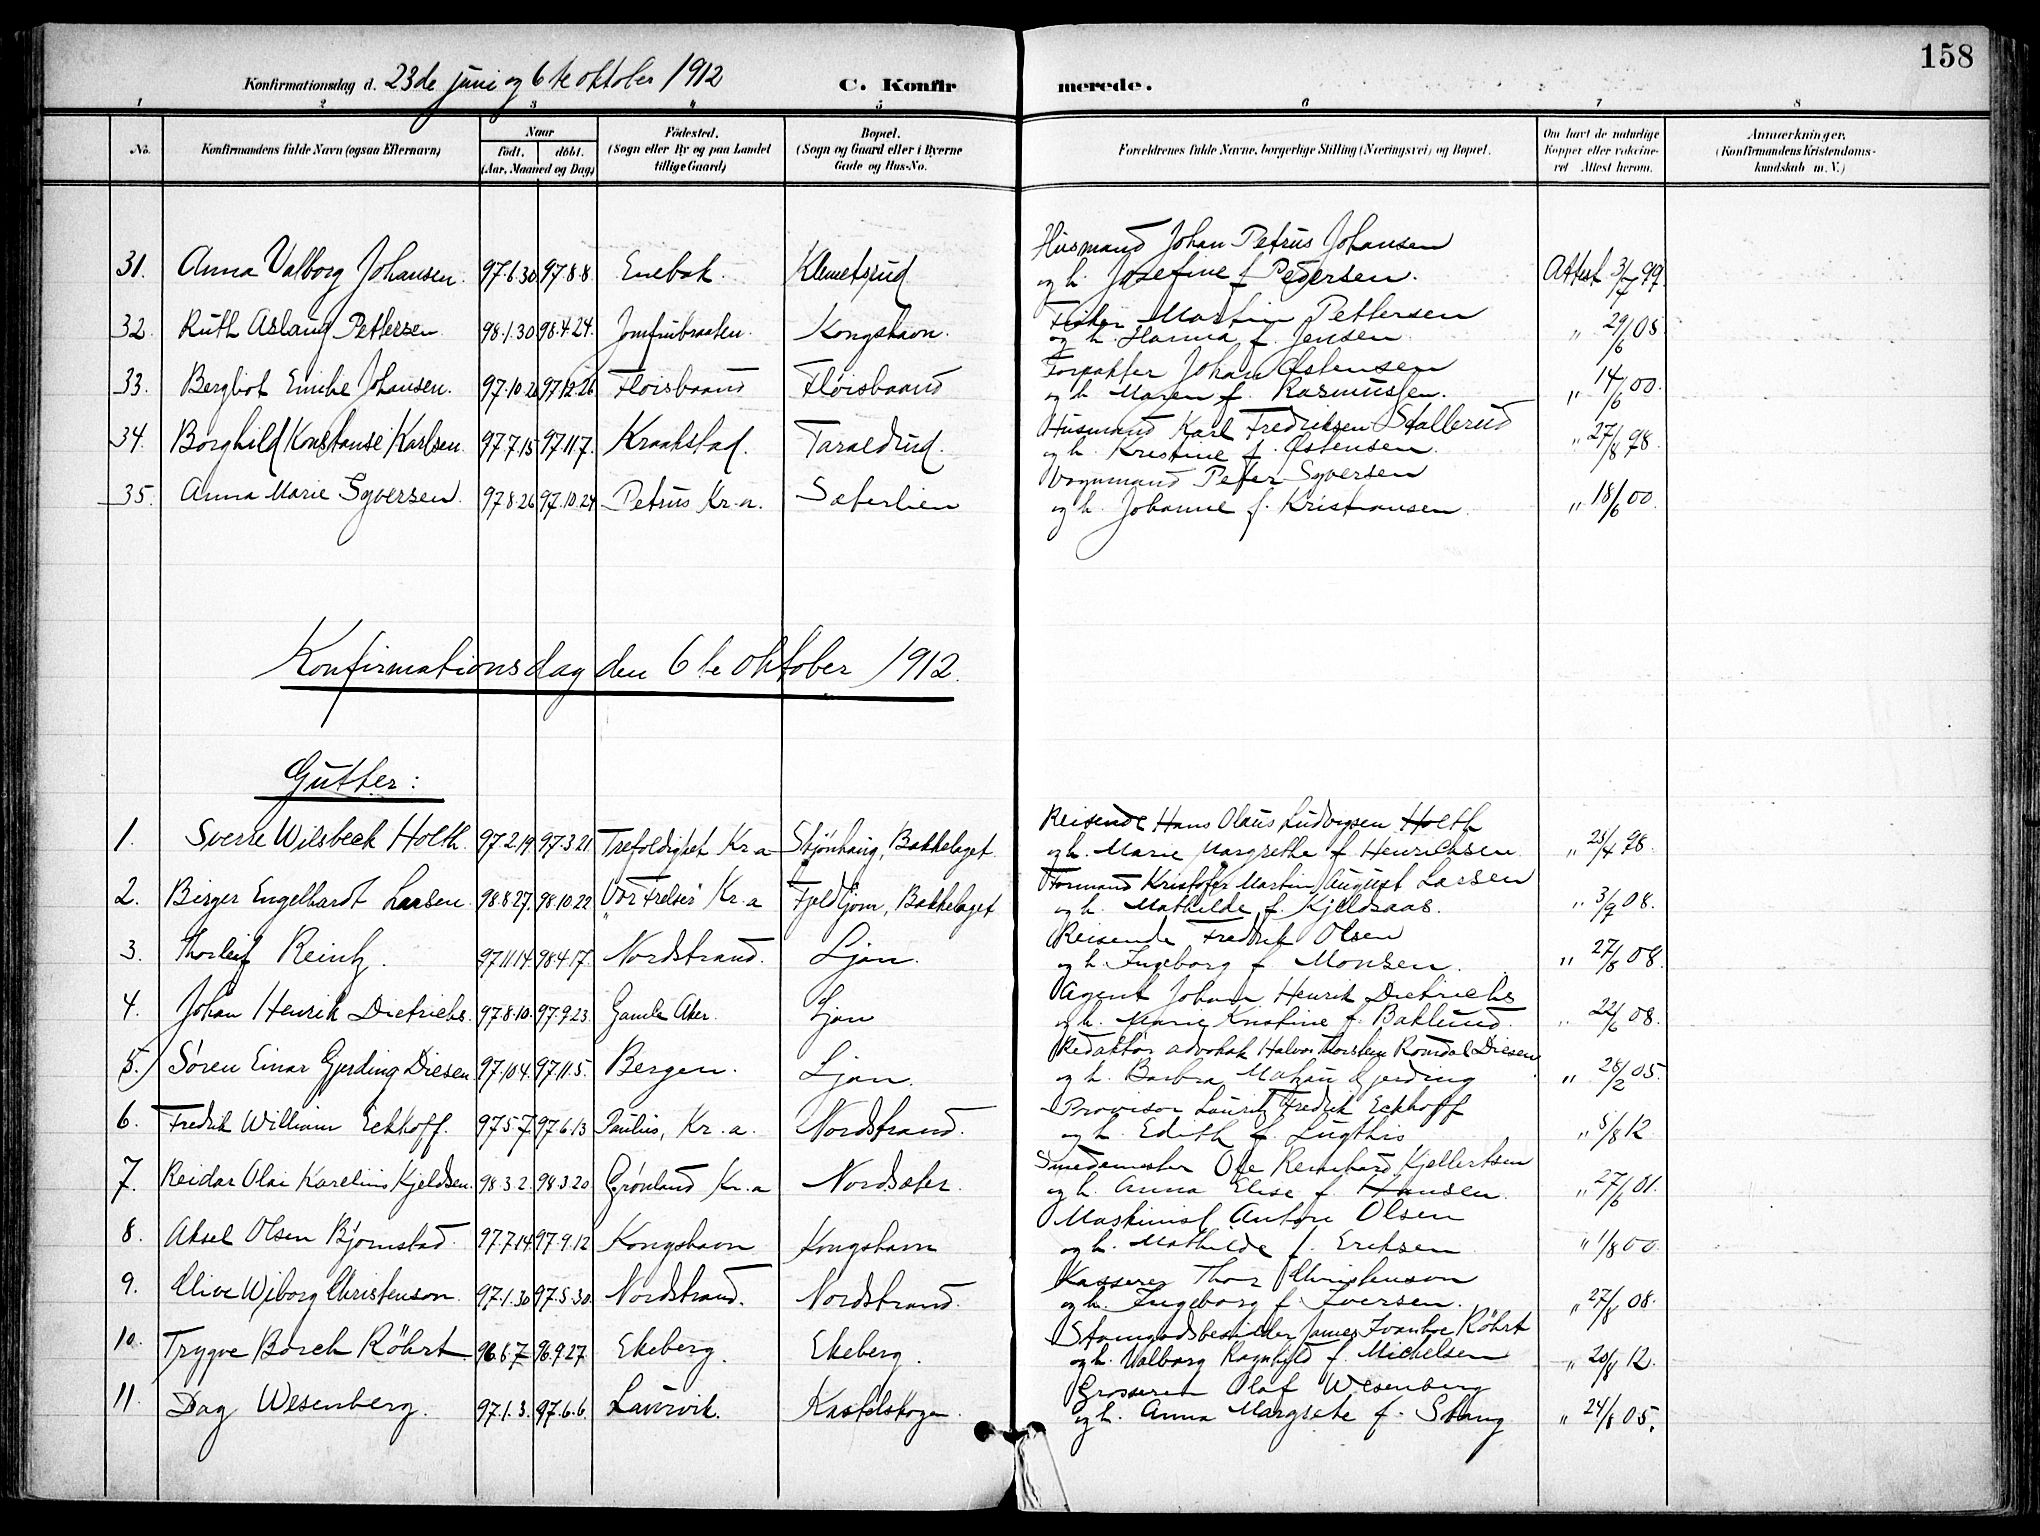 158
Konfirmationsdag d. 23de juni og 6te oktober 1912 C. Konfirmerede.
1 2 3 4 5 6 7 8
No. Konfirmandens fulde Navn (ogsaa Efternavn) Naar født, døbt. (Aar, Maaned og Dag) Fødested. (Sogn eller By og paa Landet tillige Gaard) Bopæl. (Sogn og Gaard eller i Byerne Gade og Hus-No. Forældrenes fulde Navne, borgerlige Stilling (Næringsvei) og Bopæl. Om havt de naturlige Kopper eller vakcineret Attest herom. Anmærkninger. (Konfirmandens Kristendomskundskab m. V.)
31. Anna Valborg Johansen. 97.6.30 97.8.8 Enebak. Klemetsrud Husmand Johan Petrus Johansen og h. Josefine f. Pedersen. Attest 3/7 99
32. Ruth Aslaug Pettersen 98.1.30 98.4.24. Jomfrubraaten. Kongshavn. Fisker Martin Pettersen og h. Hanna f. Jensen " 29/6 05
33. Bergliot Emilie Johansen. 97.10.2 97.12.26 Fløisbaand Fløisbaand Forpakter Johan Østensen og h. Maren f. Rasmussen. " 14/6 00.
34. Borghild Konstanse Karlsen. 97.7.15 97.11.7. Kraakstad. Taraldrud. Husmand Karl Fredriksen Stallerud og h. Kristine f. Østensen. " 27/8 98.
35. Anna Marie Syversen. 97.8.26 97.10.24 Petrus Kr.a. Sæterlien Vognmand Peter Syversen og h. Johanne f. Kristiansen. " 18/6 00.
Konfirmationsdag den 6te oktober 1912.
Gutter:
1. Sverre Wilsbeck Holth. 97.2.19 97.3.21 Trefoldighet Kr.a Skjønhaug, Bakkelaget Reisende Hans Olaus Ludvigsen Holth og h. Marie Margrethe f. Henrichsen. " 25/4 98.
2. Birger Engelhardt Larsen 98.8.27. 98.10.22 Vor Frelser Kr.a Fjeldtjom, Bakkelaget Formand Kristofer Martin August Larsen og h. Mathilde f. Kjeldsaas. " 3/9 08.
3. Thorleif Reintz. 97.11.14 98.4.17. Nordstrand. Ljan. Reisende Fredrik Olsen og h. Ingeborg f. Monsen. " 27/8 08.
4. Johan Henrik Dietrichs. 97.8.10. 97.9.23. Gamle Aker. Ljan Agent Johan Henrik Dietrichs og h. Marie Kristine f. Baklund. " 22/6 08.
5. Søren Einar Gjerding Diesen 97.10.4. 97.11.5. Bergen. Ljan. Redaktør advokat Halvor Thorstein Romdal Diesen og h. Barbra Gjerding " 26/2 05.
6. Fredrik William Eckhoff. 97.5.7. 97.6.13 Paulus, Kr.a. Nordstrand. Provisor Lauritz Fredrik Eckhoff og h. Edith f. " 5/8 12
7. Reidar Olai Karelius Kjeldsen. 98.3.2. 98.3.20 Grønland Kr.a Nordsæter. Smedemester Ole Reinhard Kjellertsen og h. Anna Elise f. Hansen. " 27/6 01.
8. Aksel Olsen Bjørnstad. 97.7.14. 97.9.12 Kongshavn Kongshavn Maskinist Anton Olsen og h. Mathilde f. Eriksen. " 1/8 00.
9. Olive Wiborg Christenson. 97.1.30 97.5.30. Nordstrand. Nordstrand. Kasserer Thor Christenson og h. Ingeborg f. Iversen. " 27/8 08.
10. Trygve Borch Röhrt. 96.6.7 96.9.27 Ekeberg. Ekeberg. Stamgodsbesidder James Ivanhoe Röhrt og h. Valborg Ragnhild f. Michelsen " 20/8 12.
11. Dag Wesenberg. 97.1.3. 97.6.6. Laurvik. Kastelskogen. Grosserer Olaf Wesenberg og h. Anna Margrete f. Stang " 24/8 05.